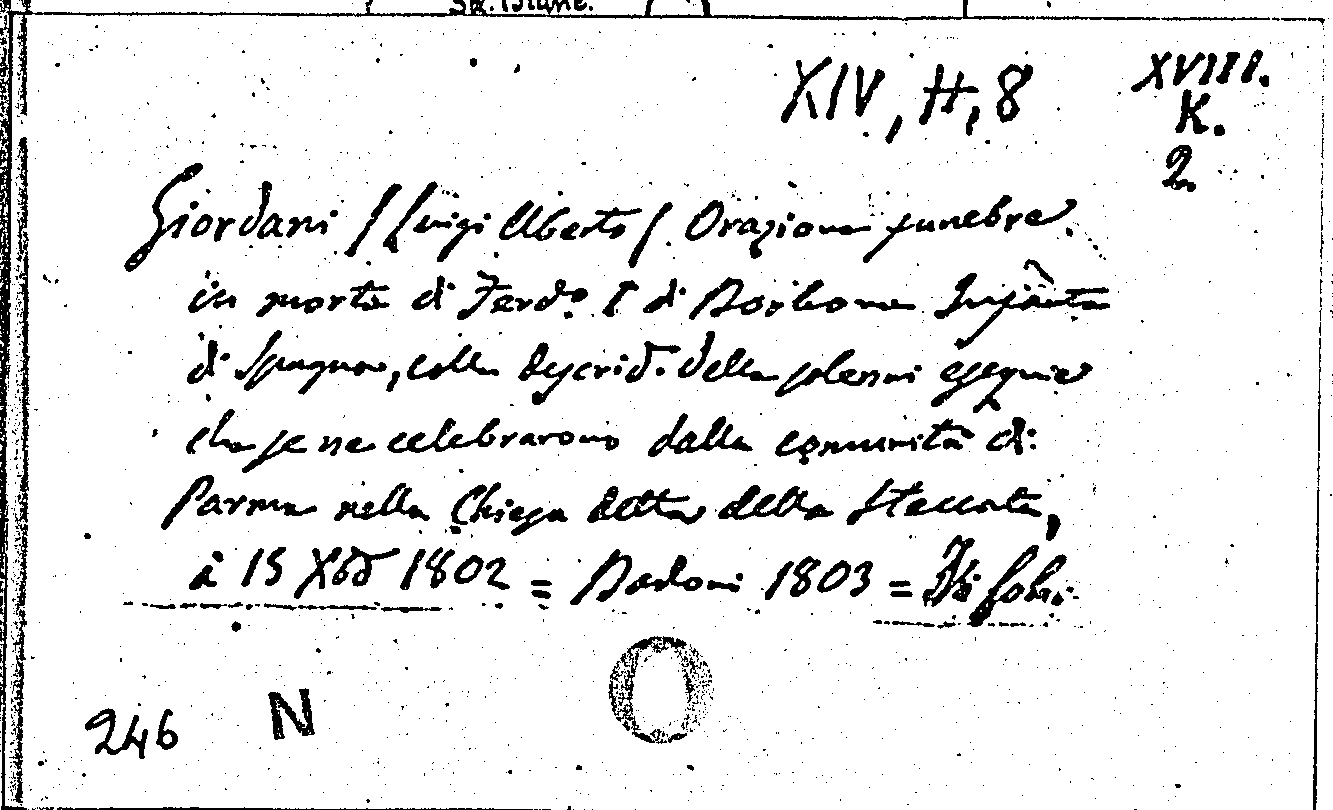 XIV, H, 8
XVIII.
K.
2.
Giordani /Luigi Uberto/ Orazione funebre
in morte di Ferd.º I di Borbone Infante
di Spagna, colla descriz. delle solenni esequie
che se ne celebrarono dalla comunità di
Parma nella Chiesa detta della Steccata,
à 15 Xbre 1802 = Bodoni 1803 =
246 N